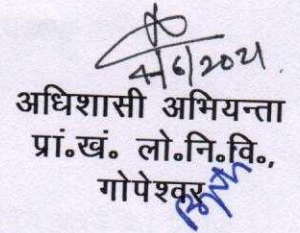 4/6/2021.
अधिशासी अभियन्ता
प्रां॰खं॰ लो॰नि॰वि॰,
गोपेश्वर